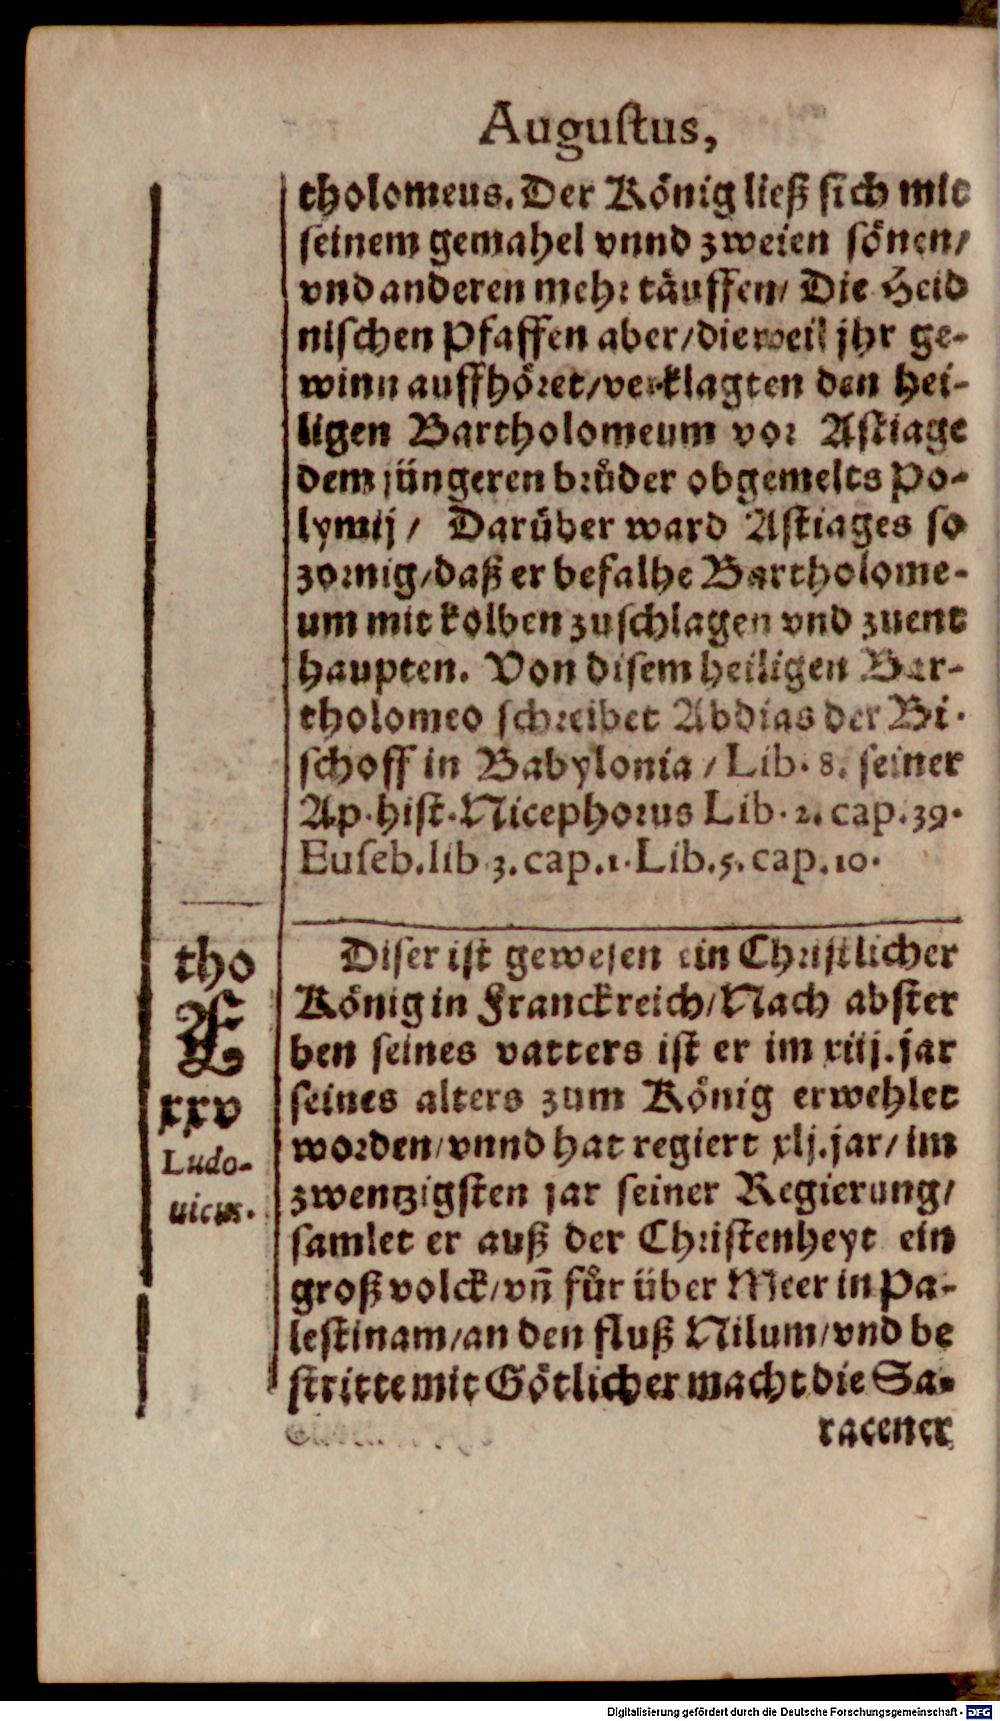 Augustus,
tholomeus. Der König ließ sich mit
seinem gemahel vnnd zweien sönen/
vnd anderen mehr täuffen/ Die Heid
nischen Pfaffen aber/ dieweil jhr ge-
winn auffhöret/ verklagten den hei-
ligen Bartholomeum vor Astiage
dem jüngeren brůder obgemelts Po-
lymij/ Darüber ward Astiages so
zornig/ daß er befalhe Bartholome-
um mit kolben zuschlagen vnd zuent
haupten. Von disem heiligen Bar-
tholomeo schreibet Abdias der Bi-
schoff in Babylonia/ Lib. 8. seiner
Ap. hist. Nicephorus Lib. 2. cap. 39.
Euseb. lib 3. cap. 1. Lib. 5. cap. 10.
tho
E
xxv
Ludo-
uicus.
Diser ist gewesen ein Christlicher
König in Franckreich/ Nach abster
ben seines vatters ist er im xiij. jar
seines alters zum König erwehlet
worden/ vnnd hat regiert xlj. jar/ im
zwentzigsten jar seiner Regierung/
samlet er auß der Christenheyt ein
groß volck/ vñ fůr über Meer in Pa-
lestinam/ an den fluß Nilum/ vnd be
stritte mit Götlicher macht die Sa-
racener
Digitalisierung gefördert durch die Deutsche Forschungsgemeinschaft - DFG